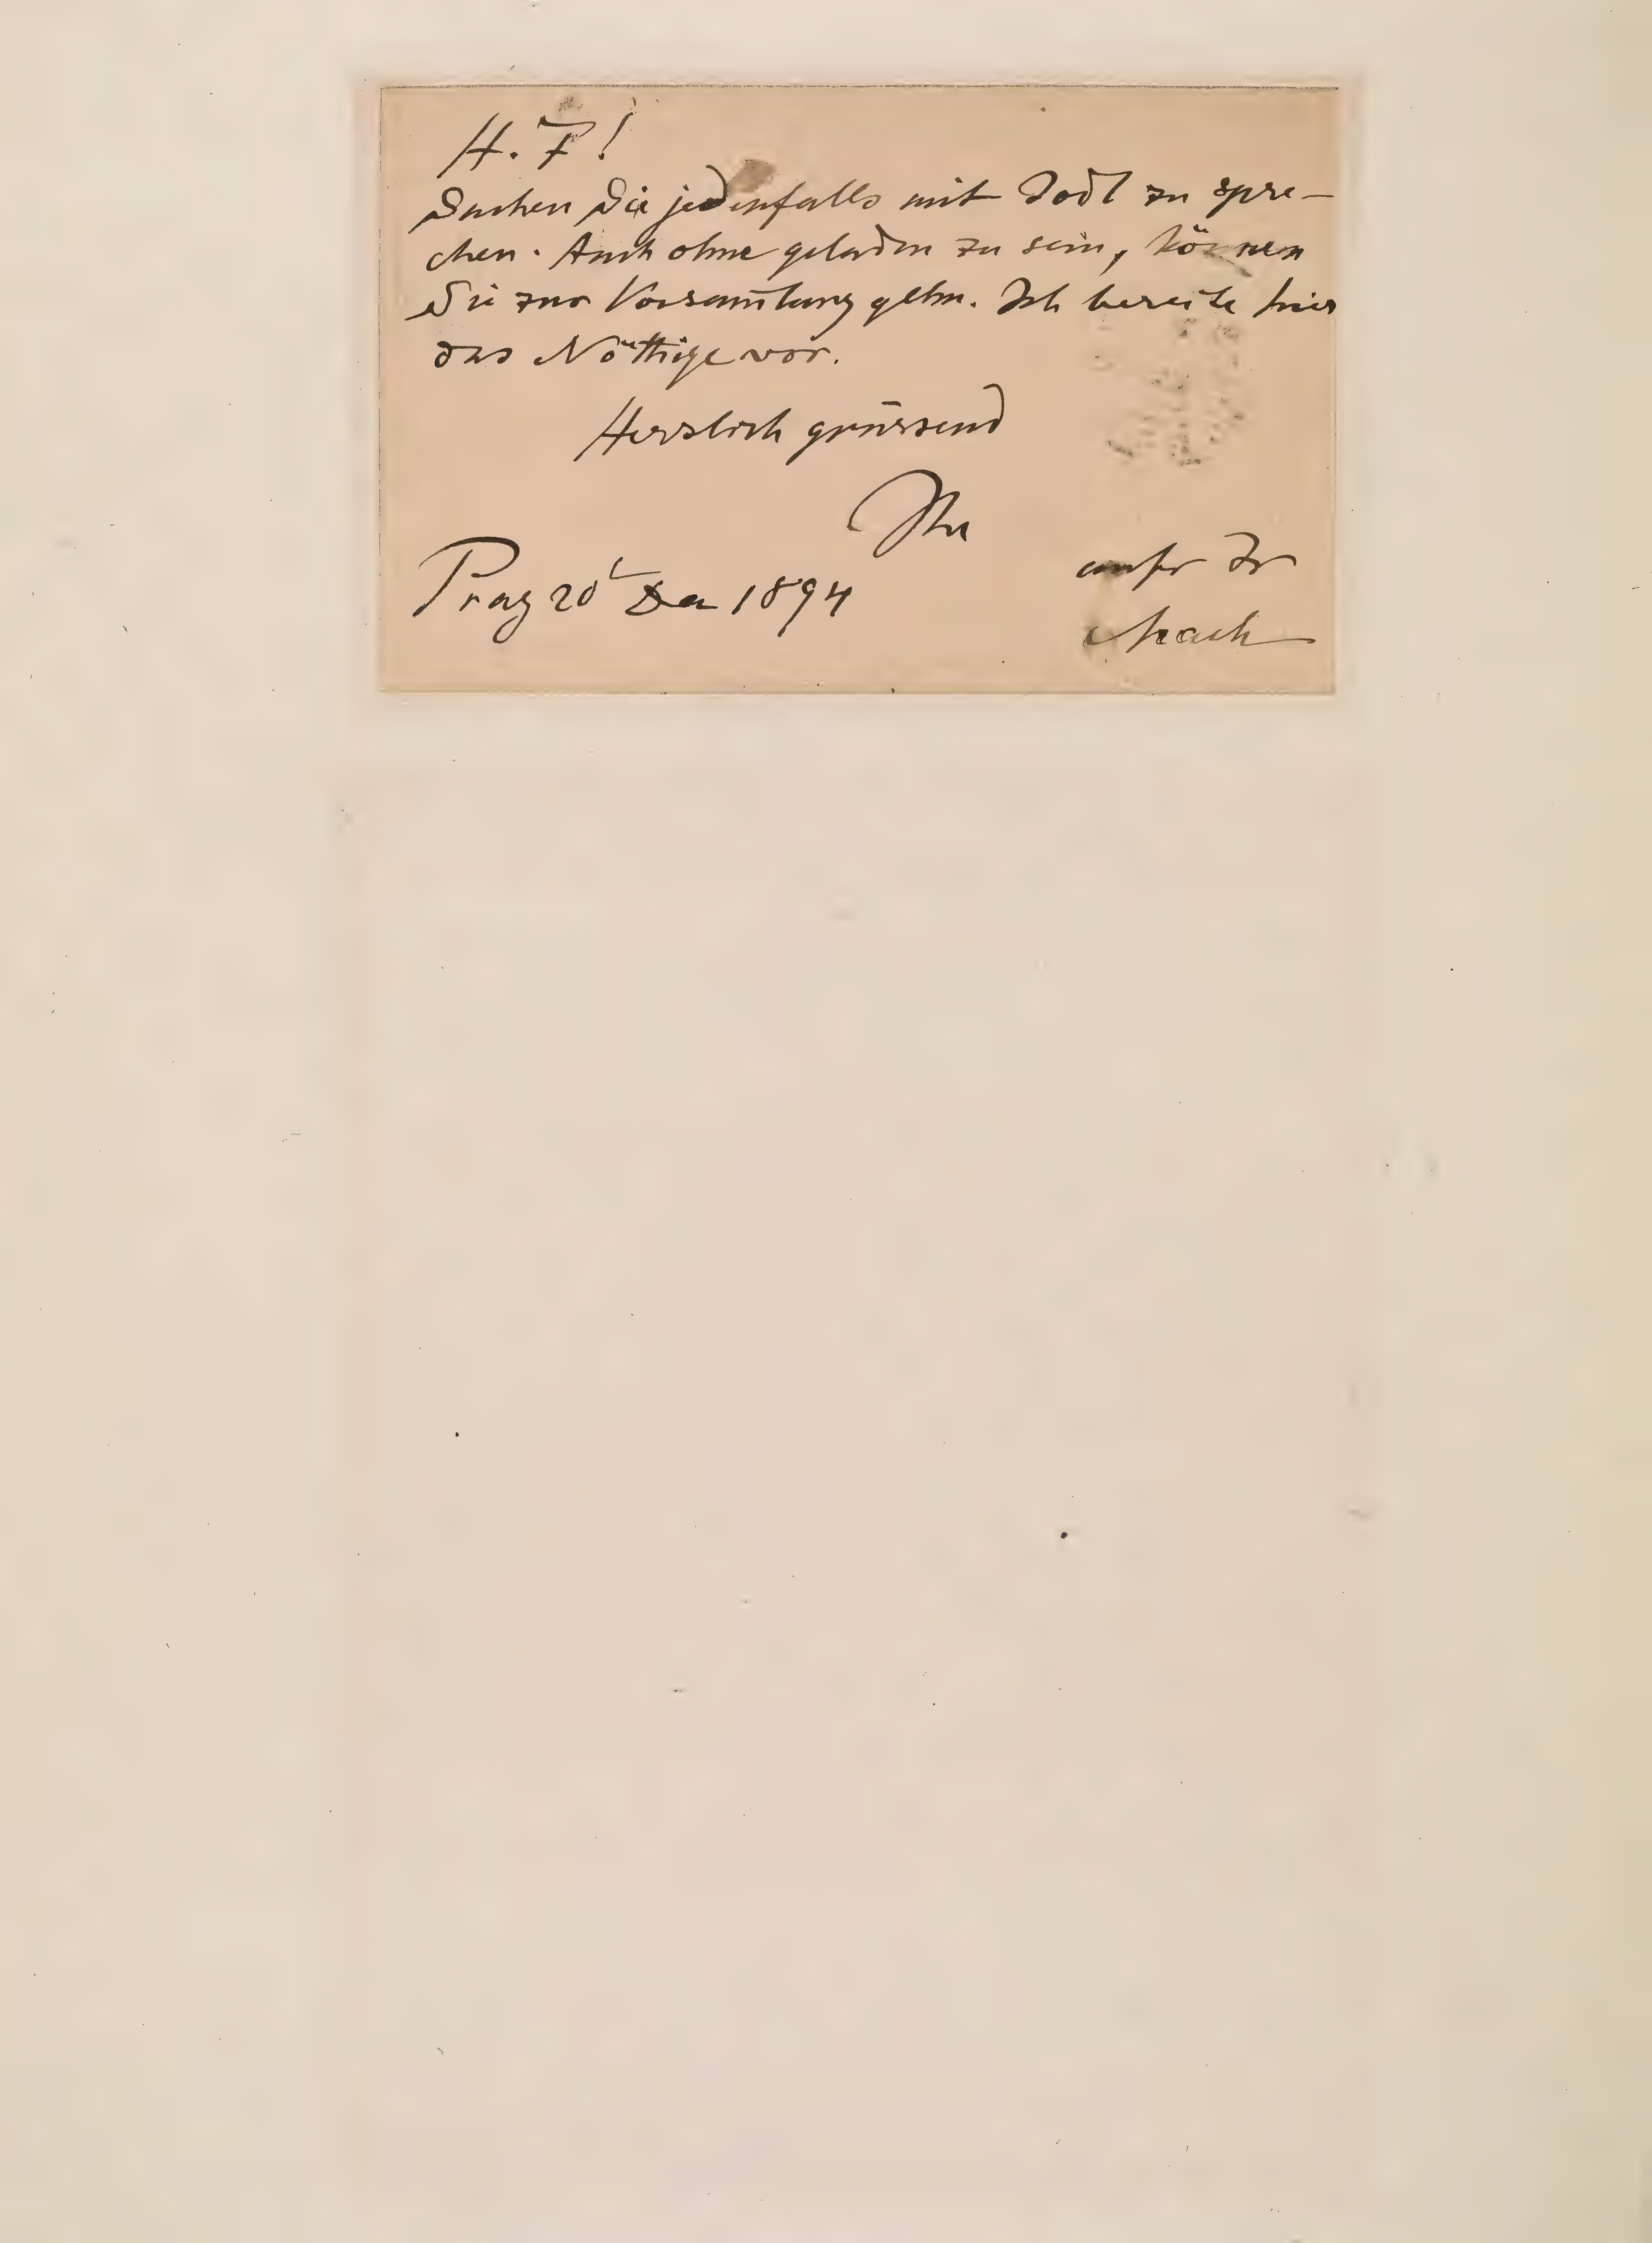 H. F!
Suchen Sie jedenfalls mit Jodl zu spre-
chen. Auch ohne geladen zu sein, können
Sie zur Versam̄lung gehn. Ich bereite hier
das Nöthige vor.
Herzlich grüssend
Ihr
Prag 20 1894
Dr
Mach